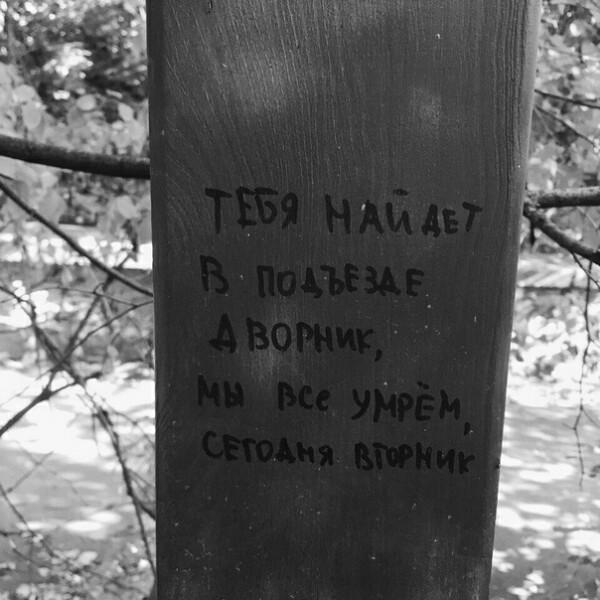 ТЕБЯ НАЙДЕТ
В ПОДЪЕЗДЕ
ДВОРНИК,
МЫ ВСЕ УМРЁМ,
СЕГОДНЯ ВТОРНИК